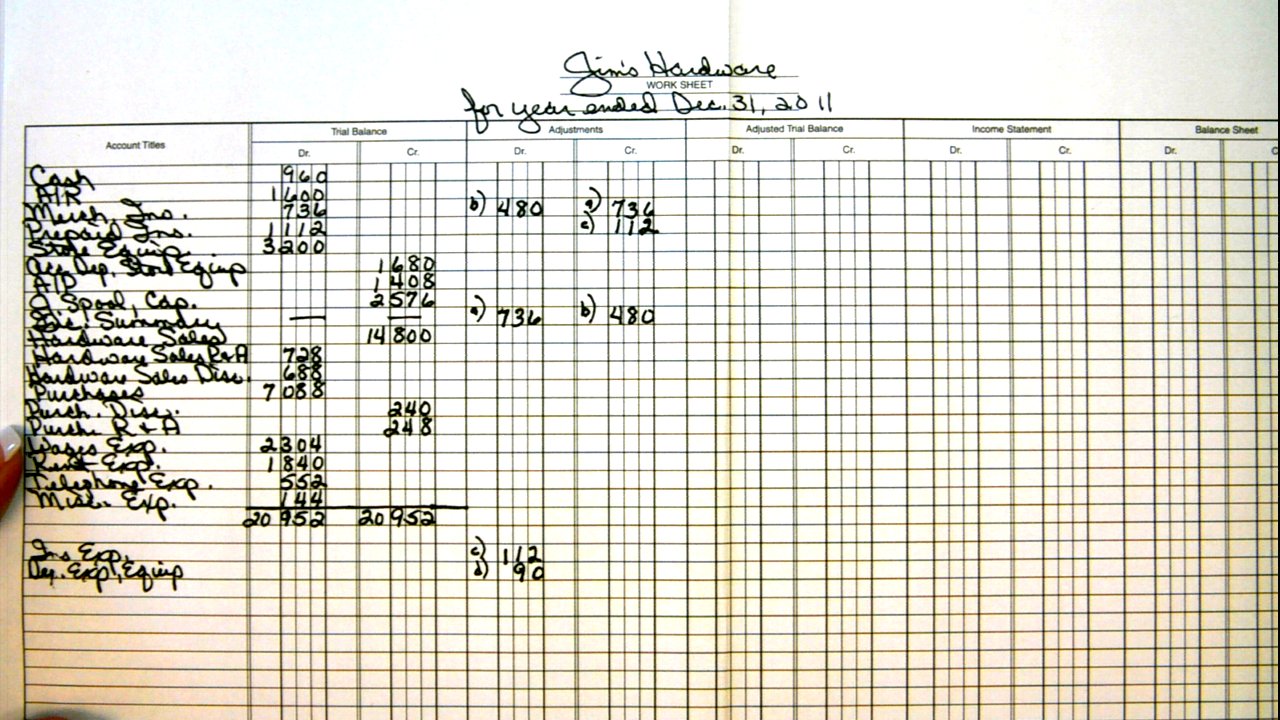 Jim's Hardware
WORK SHEET
for year ended Dec. 31, 2011
Account Titles Trial Balance Adjustments Adjusted Trial Balance Income Statement Balance Sheet
Dr. Cr. Dr. Cr. Dr. Cr. Dr. Cr. Dr. C
Cash 960
A/R 1600
Merch. Ins. 736 b) 480 a) 736
Prepaid Ins. 1112 c) 112
Store Equip. 3200
Acc. Dep. Store Equip 1680
A/P 1408
J. Spool, Cap. 2576
Inc. Summary — — a) 736 b) 480
Hardware Sales 14800
Hardware Sales R+A 728
Hardware Sales Disc. 688
Purchases 7088
Purch. Disc. 240
Purch. R + A 248
Wages Exp. 2304
Rent Exp. 1840
Telephone Exp. 552
Misc. Exp. 144
20952 20952
Ins Exp. c) 112
Dep. Exp., Equip d) 90